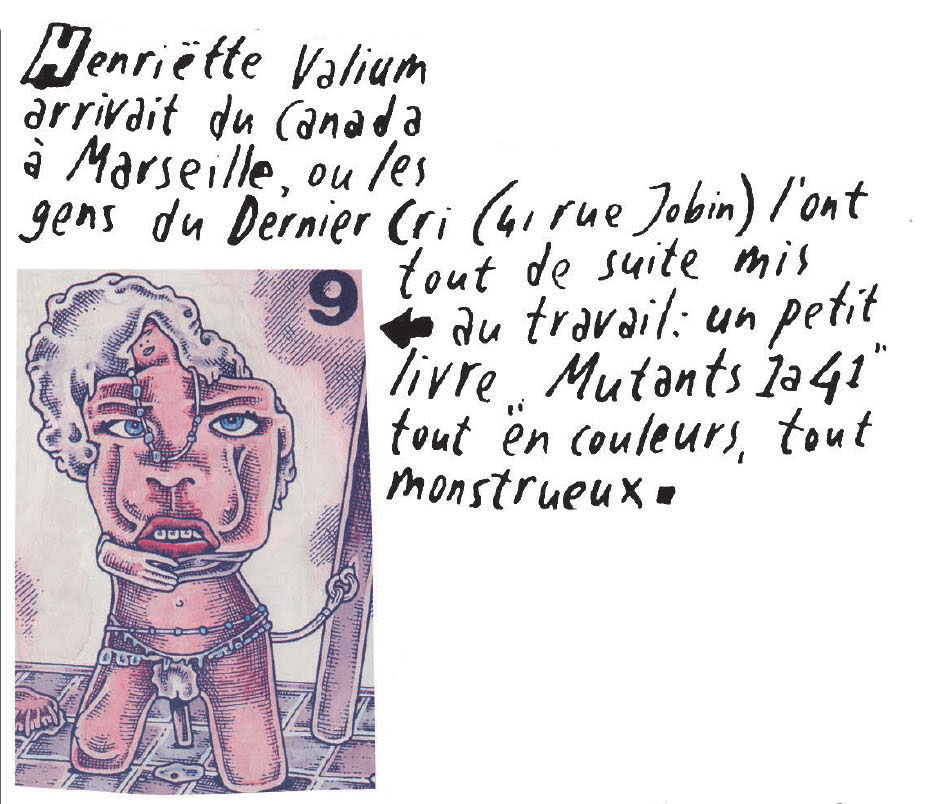 Henriëtte Valium
arrivait du Canada
à Marseille, ou les
gens du Dernier Cri (41 rue Jobin) l'ont
tout de suite mis
au travail: un petit
livre „Mutants 1a41"
tout ën couleurs, tout
monstrueux.
9